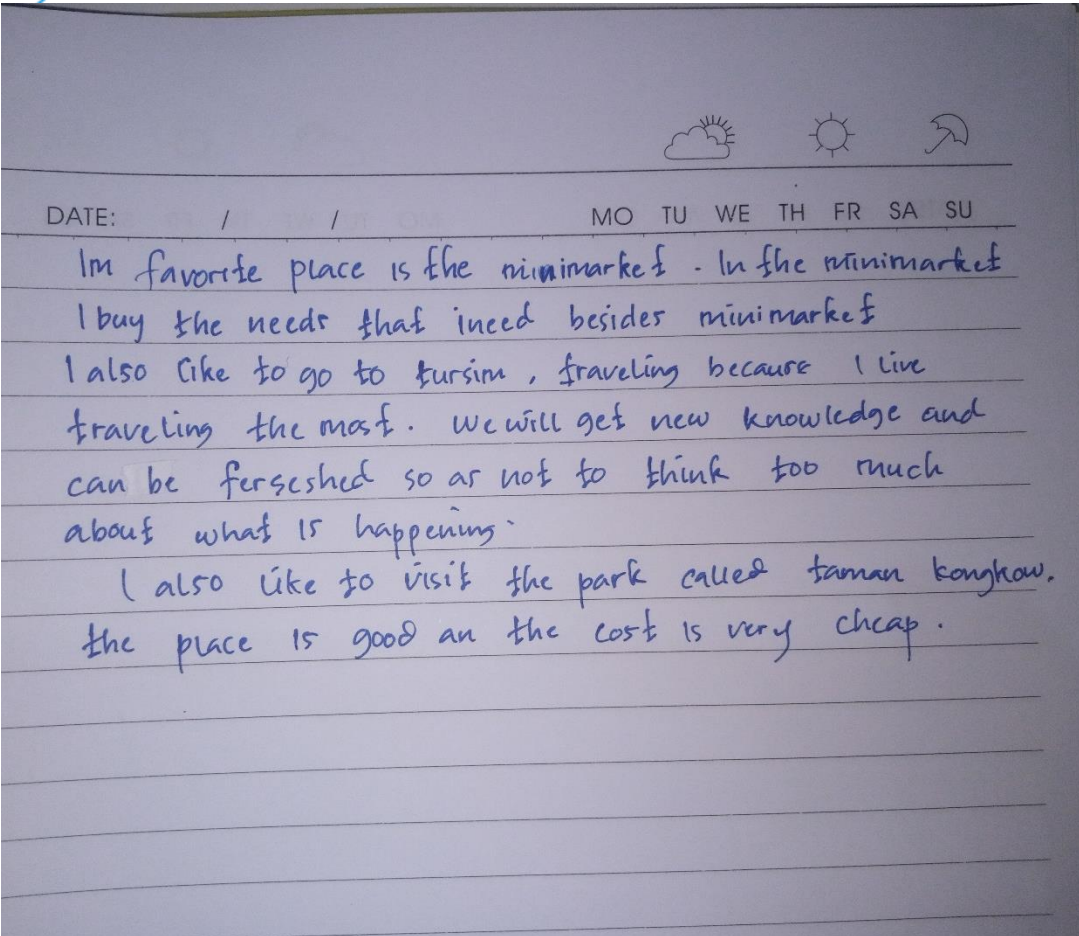 DATE: / / MO TU WE TH FR SA SU
Im favorite place is the minimarket . In the minimarket
I buy the needs that ineed besides minimarket
I also like to go to tursim , traveling because I live
traveling the most . We will get new knowledge and
can be ferseshed so as not to think too much
about what is happening.
I also like to visit the park called taman kongkow.
the place is good an the cost is very cheap .